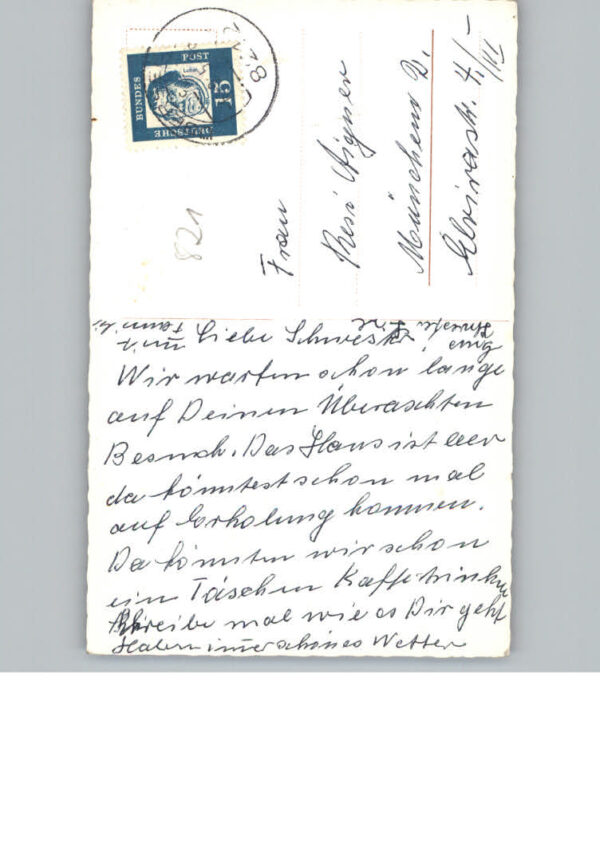 DEUTSCHE
BUNDES
POST
15
821
Frau
Resi Aigner
München 2.
Elvirastr. 4/-
III
Liebe Schwester!
Wir warten schon lange
auf Deinen Überaschten
Besuch. Das Haus ist leer
da könntest schon mal
auf Erholung kommen.
Da könnten wir schon
ein Täschen Kaffe trinken
Schreibe mal wie es Dir geht
Haben imer schönes Wetter
mit Fam.